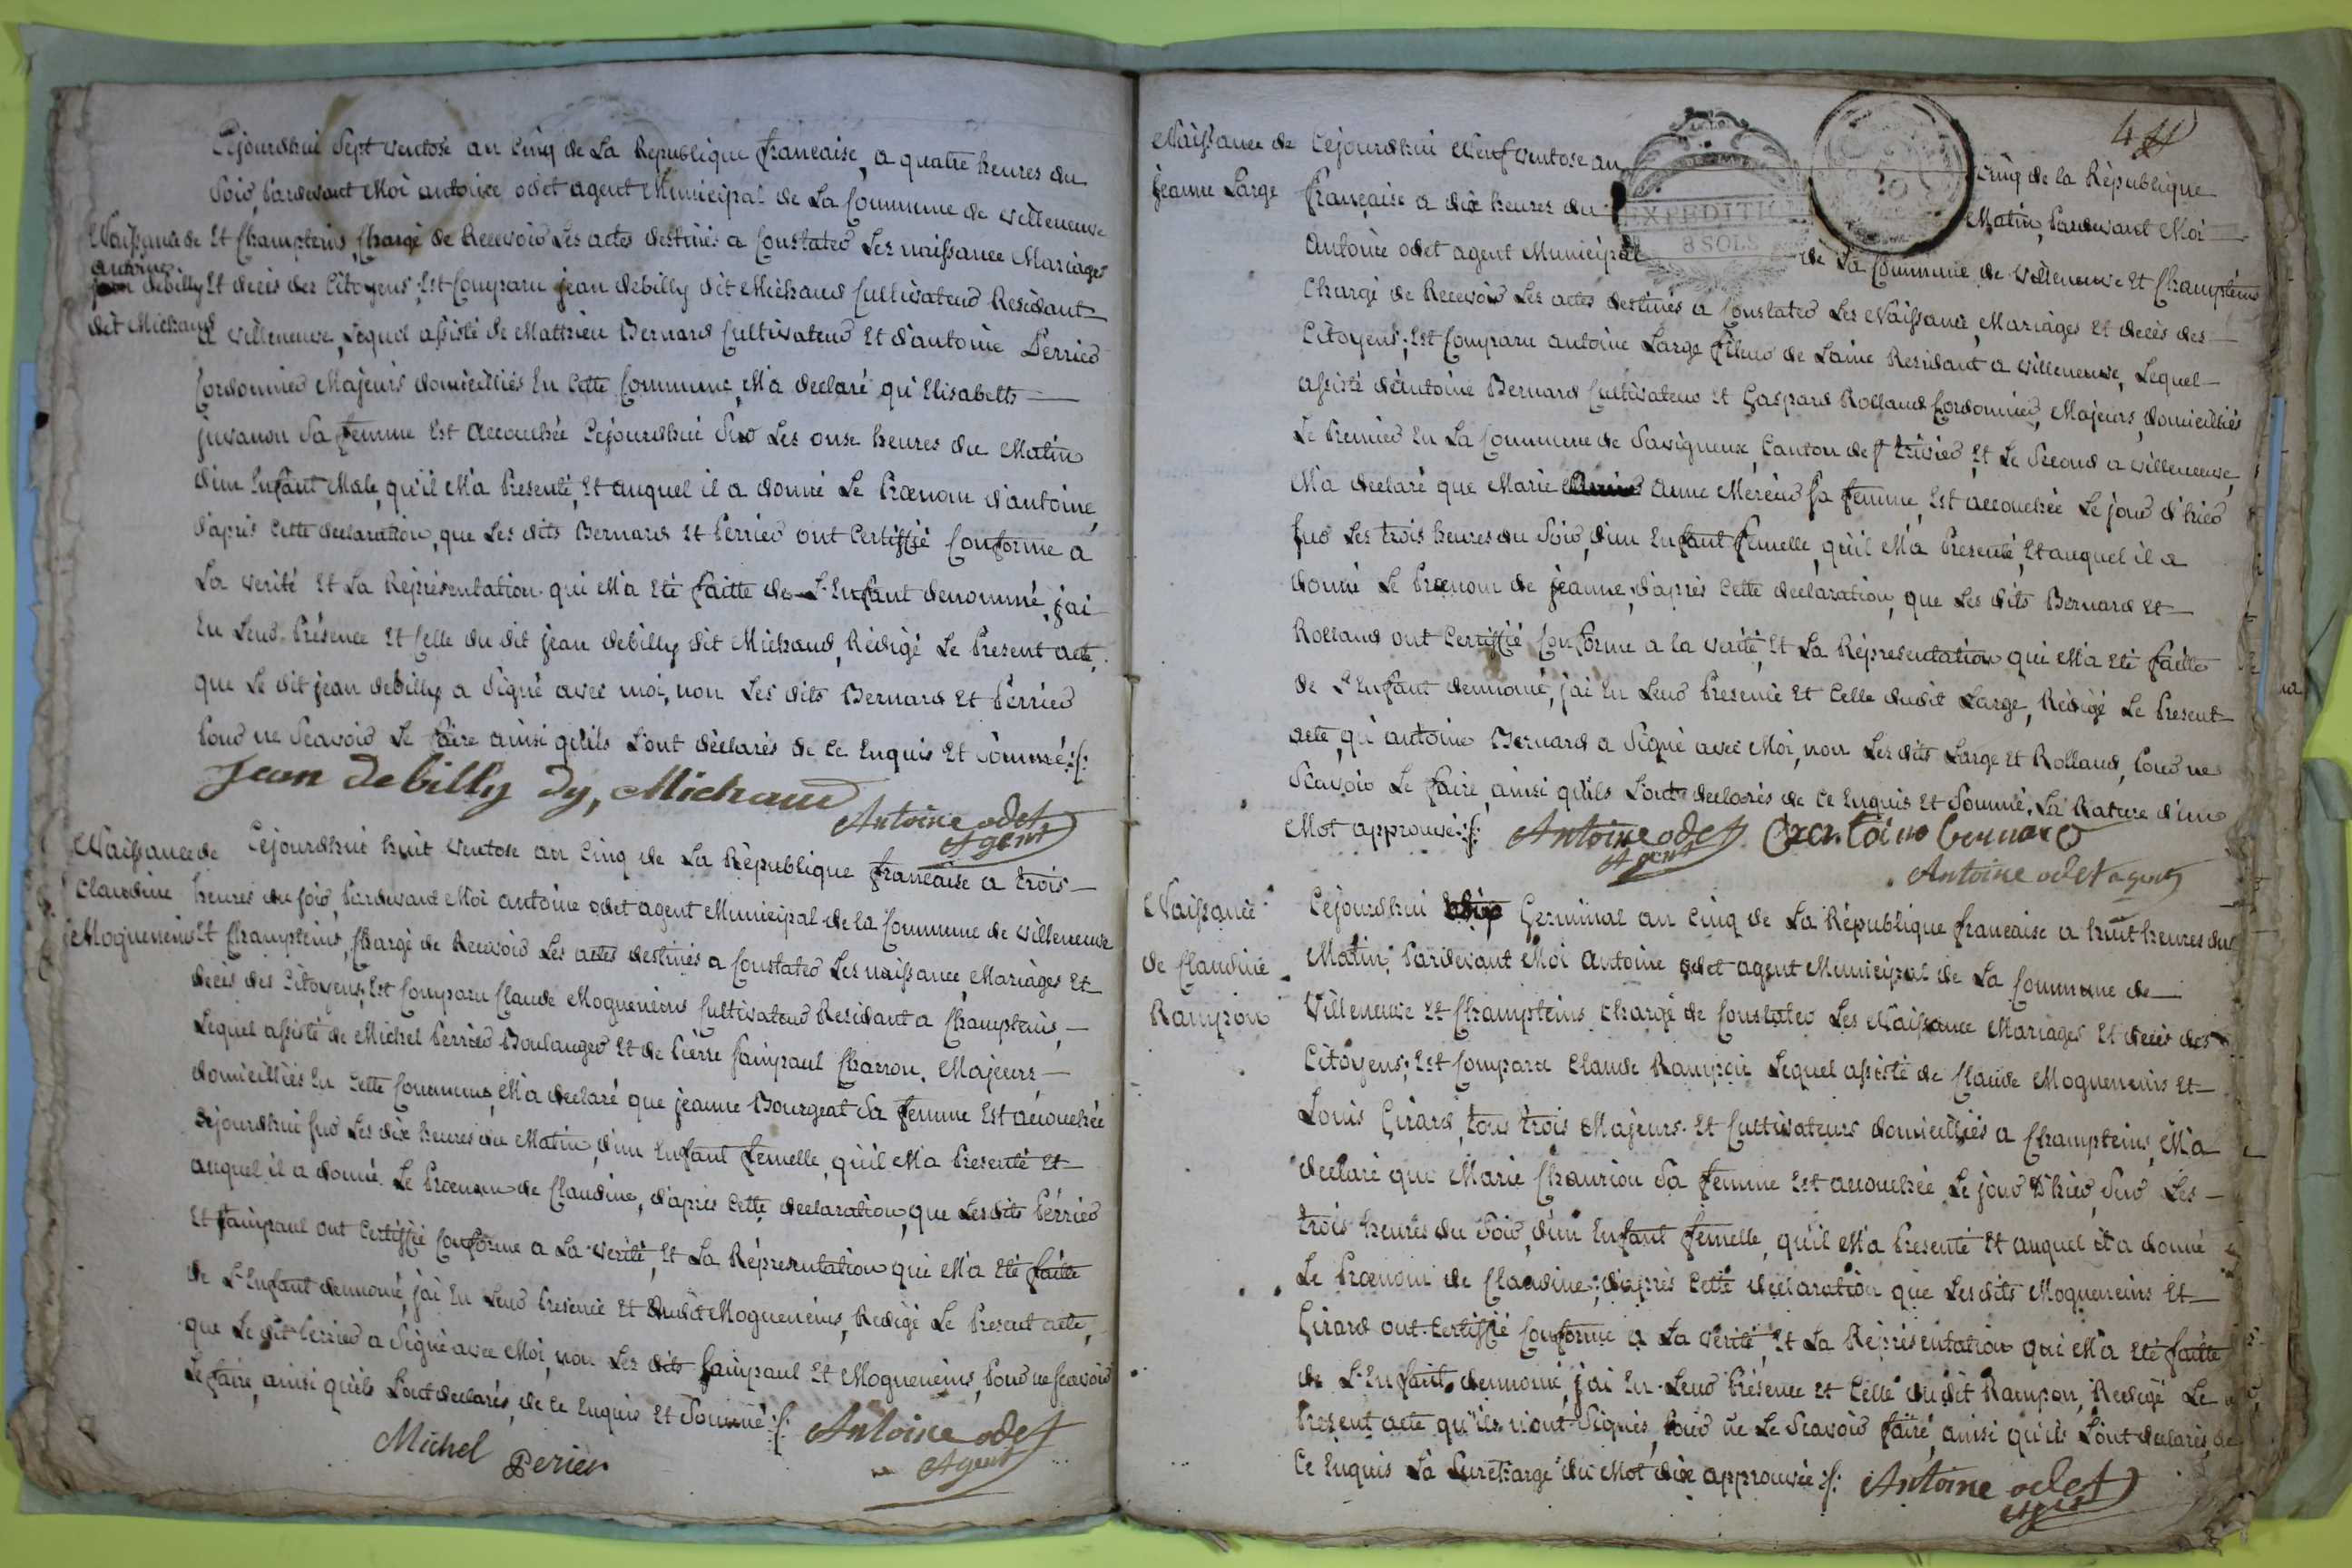 Cejourdhui Sept ventose an cinq de La Republique francaise, a quatre heures du
Soir, Pardevant Moi antoine odet agent Municipal de La Commune de villeneuve
Naissance de
antoine
debilly
dit Michaud
Et Champteins, Chargé de Recevoir Les actes destinés a Constater Les naissance Mariages
Et décès des Citoyens, Est Comparu jean debilly dit Michaud Cultivateur Residant
a villeneuve, Lequel assisté de Matthieu Bernard Cultivateur Et d'antoine Perrier
Cordonnier Majeurs domicilliés En Cette Commune, M'a declaré qu'Elisabett
juvanon Sa femme Est Accouchée Cejourdhui Sur Les onse heures du Matin
d'un Enfant Male, qu'il M'a Presenté, Et auquel il a donné Le Prœnom d'antoine,
d'après Cette declaration, que Les dits Bernard Et Perrier ont Certiffié Conforme a
La verité Et La Réprésentation qui M'a Eté faitte de L'Enfant denommé, j'ai
En Leur Présence Et Celle du dit jean debilly dit Michaud, Rédigé Le Present acte,
que Le dit jean debilly a Signé avec moi, non Les dits Bernard Et Perrier
Pour ne Scavoir Le faire ainsi qu'ils L'ont déclarés de Ce Enquis Et Sommé./.
Jean debilly dy, Michaud
Antoine odet
Agent
Naissance de
Claudine
Mogueneins
Cejourdhui huit ventose an Cinq de La Rèpublique francaise a trois
heures du soir, Pardevant Moi antoine odet agent Municipal de la Commune de villeneuve
Et Champteins, Chargé de Recevoir Les actes destinés a Constater Les naissance, Mariages Et
decès des Citoyens, Est Comparu Claude Mogueneins Cultivateur Residant a Champteins,
Lequel assisté de Michel Perrier Boulanger Et de Pierre fainpaul Charron, Majeurs
domicilliés En Cette Commune, M'a declaré que jeanne Bourgeat Sa femme Est accouchée
Cejourdhui sur Les dix heures du Matin, d'un Enfant femelle, qu'il M'a Presenté Et
auquel il a donné Le Prœnom de Claudine, d'après Cette declaration, que Les dits Perrier
Et fainpaul ont Certiffié Conforme a La verité, Et La Réprésentation qui M'a Eté faitte
de L'Enfant denommé, j'ai En Leur Presence Et dudit Mogueneins, Redigé Le Present acte,
que Le dit Perrier a Signé avec Moi, non Les dits fainpaul Et Mogueneins, Pour ne scavoir
Le faire, ainsi qu'ils L'ont declarés, de Ce Enquis Et Sommé./.
Antoine odet
Agent
Michel Perier
4
Naissance de
jeanne Large
Cejourdhui Neuf ventose an cinq de la Rèpublique
française a dix heures du Matin, Pardevant Moi
EXPEDITION
8 SOLS
Antoine odet agent Municipal de La Commune de villeneuve Et Champteins
Chargé de Recevoir Les actes destinés a Constater Les Naissance, Mariages Et decès des
Citoyens, Est Comparu antoine Large fileur de Laine Residant a villeneuve, Lequel
assisté d'antoine Bernard Cultivateur Et Gaspard Rolland Cordonnier, Majeurs, domicilliés
Le Premier En La Commune de Savigneux, Canton de St trivier, Et Le Second a villeneuve,
M'a declaré que Marie anne Mercier Sa femme, Est accouchée Le jour d'hier
sur Les trois heures du Soir, d'un Enfant femelle, qu'il M'a Presenté, Et auquel il a
donné Le Prœnom de jeanne, d'après Cette declaration, que Les dits Bernard Et
Rolland ont Certiffié Conforme a la verité, Et La Répresentation qui M'a Eté faitte
de L'Enfant denommé, j'ai En Leur Presence Et Celle dudit Large, Rédigé Le Present
acte, qu'antoine Bernard a Signé avec Moi, non Les dits Large Et Rolland, Pour ne
Scavoir Le faire, ainsi qu'ils L'ont declarés de Ce Enquis Et Sommé. La Rature d'un
Mot approuvé./.
Antoine odet
Agent
antoine bernard
Antoine odet agent
Naissance
de Claudine
Rampon
Cejourdhui dix Germinal an Cinq de La Rèpublique francaise a huit heures du
Matin, Pardevant Moi Antoine odet agent Municipal de La Commune de
Villeneuve Et Champteins Chargé de Constater Les Naissance Mariages Et decès des
Citoyens, Est Comparu Claude Rampon Lequel assisté de Claude Mogueneins Et
Louis Girard, tous trois Majeurs Et Cultivateurs domicilliés a Champteins, M'a
declaré que Marie Chaurion Sa femme Est accouchée Le jour D'hier, Sur Les
trois heures du Soir, d'un Enfant femelle, qu'il M'a Presenté Et auquel il a donné
Le Prœnom de Claudine; d'après Cette declaration que Les dits Mogueneins Et
Girard ont Certiffié Conforme a La vérité, Et La Réprésentation qui M'a Eté faitte
de L'Enfant denommé, j'ai En Leur Présence Et Celle du dit Rampon, Redigé Le
Present acte qu'ils n'ont Signés, Pour ne Le Scavoir faire, ainsi qu'ils L'ont declarés, de
Ce Enquis La Surcharge du Mot dix approuvée./.
Antoine odet
agent